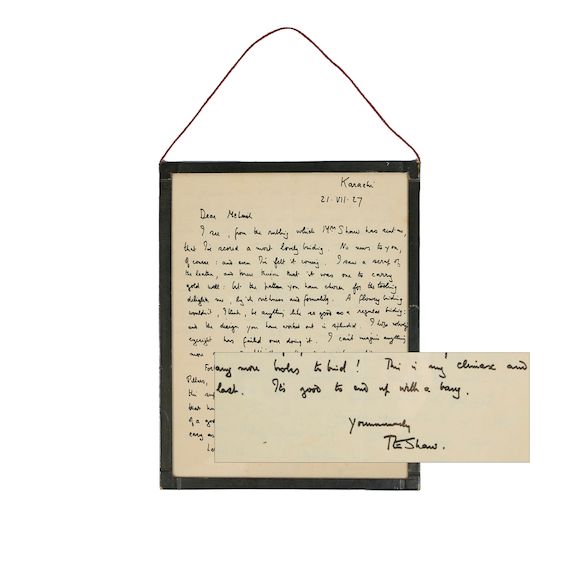 Karachi
21·VII·27
Dear McLeish
I see, from the rubbing which Mrs Shaw has sent me,
that I've scored a most lovely binding. No news to you,
of course: and even I'd felt it coming. I saw a scrap of
the leather, and knew that it was one to carry
gold well: but the pattern you have chosen for the tooling
delights me, by its richness and formality. A flowery binding
wouldn't, I think, be anything like as good as a regular binding:
and the design you have worked out is splendid. I hope nobody's
eyesight has failed over doing it. I can't imagine anything
more
For
Pillars,
this
bear
of a
easy
any more books to bind! This is my climax and
last. It's good to end up with a bang.
Yours sincerely
TEShaw.